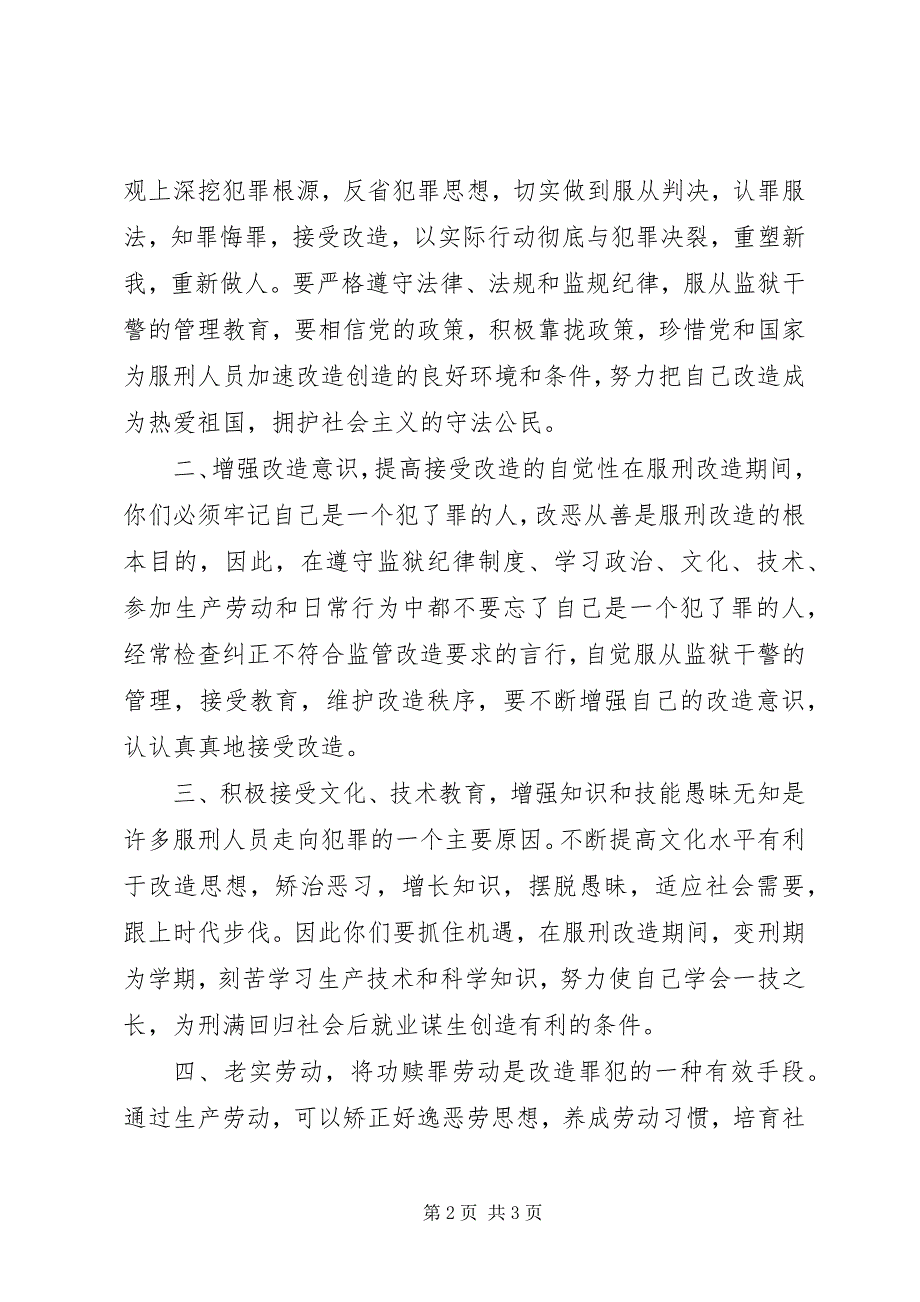 观上深挖犯罪根源，反省犯罪思想，切实做到服从判决，认罪服
法，知罪悔罪，接受改造，以实际行动彻底与犯罪决裂，重塑新
我，重新做人。要严格遵守法律、法规和监规纪律，服从监狱干
警的管理教育，要相信党的政策，积极靠拢政策，珍惜党和国家
为服刑人员加速改造创造的良好环境和条件，努力把自己改造成
为热爱祖国，拥护社会主义的守法公民。
二、增强改造意识，提高接受改造的自觉性在服刑改造期间，
你们必须牢记自己是一个犯了罪的人，改恶从善是服刑改造的根
本目的，因此，在遵守监狱纪律制度、学习政治、文化、技术、
参加生产劳动和日常行为中都不要忘了自己是一个犯了罪的人，
经常检查纠正不符合监管改造要求的言行，自觉服从监狱干警的
管理，接受教育，维护改造秩序，要不断增强自己的改造意识，
认认真真地接受改造。
三、积极接受文化、技术教育，增强知识和技能愚昧无知是
许多服刑人员走向犯罪的一个主要原因。不断提高文化水平有利
于改造思想，矫治恶习，增长知识，摆脱愚昧，适应社会需要，
跟上时代步伐。因此你们要抓住机遇，在服刑改造期间，变刑期
为学期，刻苦学习生产技术和科学知识，努力使自己学会一技之
长，为刑满回归社会后就业谋生创造有利的条件。
四、老实劳动，将功赎罪劳动是改造罪犯的一种有效手段。
通过生产劳动，可以矫正好逸恶劳思想，养成劳动习惯，培育社
第 2 页 共 3 页